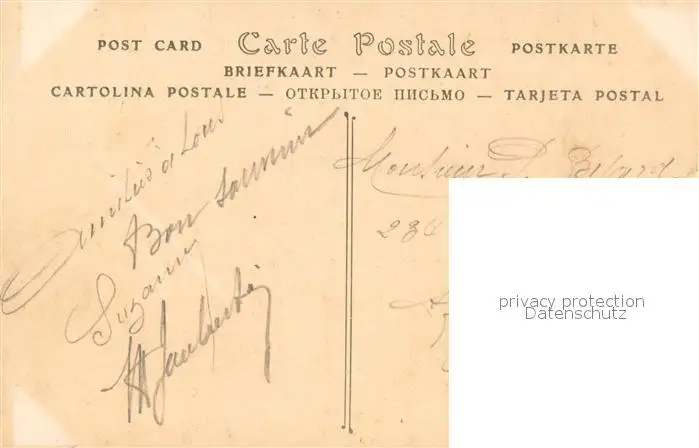 POST CARD Carte Postale POSTKARTE
BRIEFKAART — POSTKAART
CARTOLINA POSTALE — ОТКРЫТОЕ ПИСЬМО — TARJETA POSTAL
Amitiés à tous
Bon souvenir
Suzanne
Monsieur
privacy protection
Datenschutz